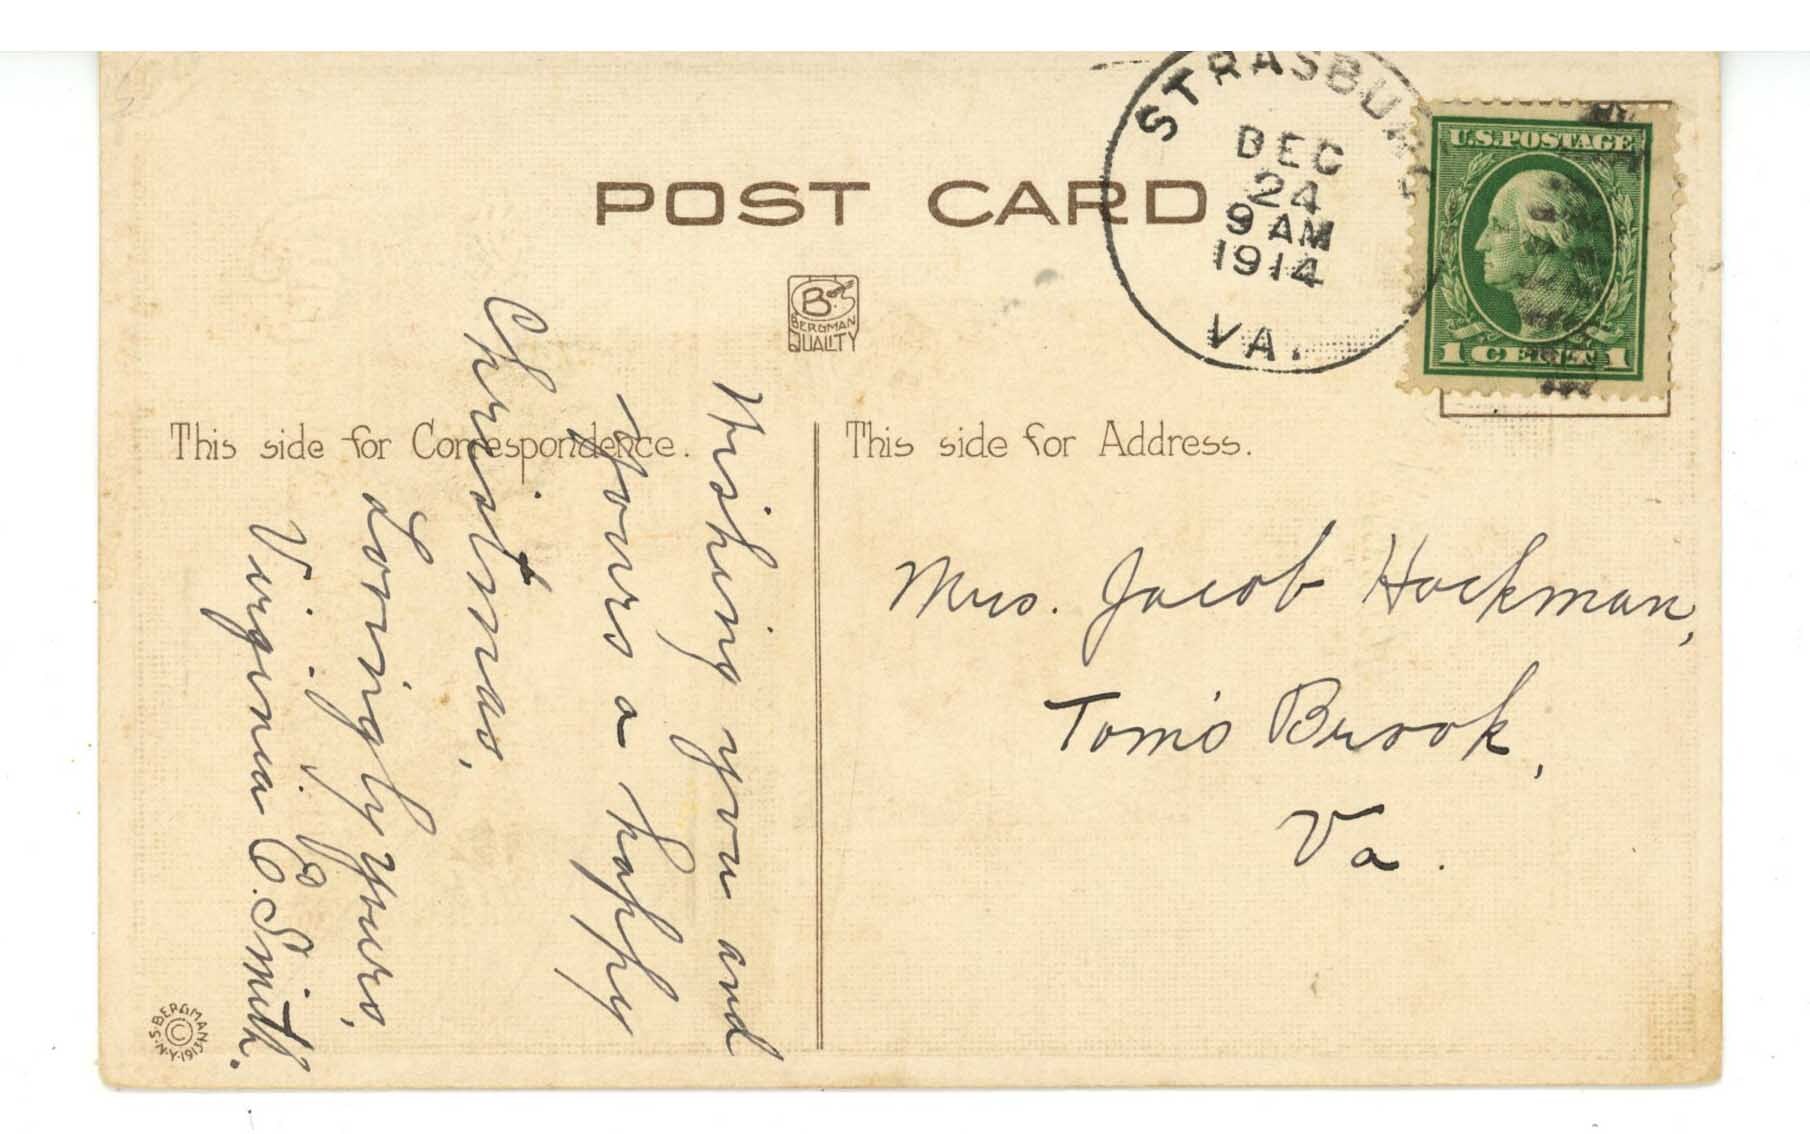 POST CARD
STRASBURG
DEC
24
9 AM
1914
VA.
U.S. POSTAGE
1 CENT 1
B.
BERGMAN
QUALITY
This side for Correspondence.
This side for Address.
Wishing you and
yours a happy
Christmas,
Lovingly yours,
Virginia E. Smith.
Mrs. Jacob Hockman,
Tom's Brook,
Va.
S. BERGMAN
©
N.Y. 1913